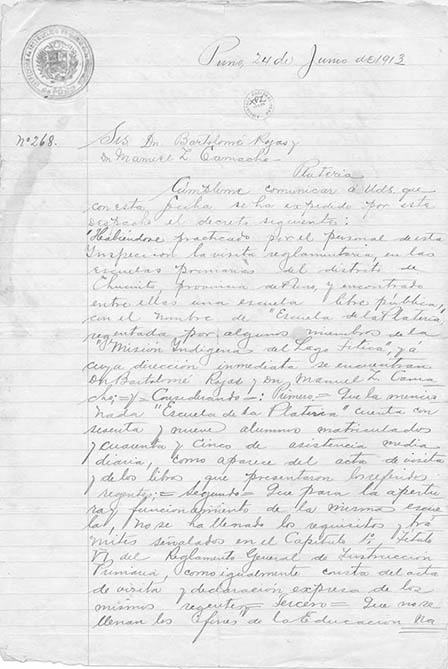 Puno, 24 de Junio de 1913
Nº 268.
Srs Dn Bartolomé Rojas y
Dn Manuel Z Camacho
Plateria
Cumpleme comunicar á Uds. que
con esta fecha se ha expedido por este
despacho el decreto siguiente:
"Habiendose practicado por el personal de esta
Inspección la visita reglamentaria, en las
escuelas primarias del distrito de
Chucuito, provincia de Puno, y encontrado
entre ellas una escuela libre publica,
con el nombre de "Escuela de la Plateria,
regentada por algunos miembros de la
"Misión Indigena del Lago Titica", y á
cuya dirección inmediata se encuentran
Dn Bartolomé Rojas y Dn Manuel Z Cama
cho; =y= Considerando =: Primero = Que la mencio
nada "Escuela de la Plateria" cuenta con
sesenta y nueve alumnos matriculados
y cuarenta y cinco de asistencia media
diaria, como aparece del acta de visita
y de los libros que presentaron los referidos
regentes; = Segundo = Que para la apertu
ra y funcionamiento de la misma escue
la, no se ha llenado los requisitos y trá
mites señalados en el Capitulo 1º, Titulo
VI, del Reglamento General de Instrucción
Primaria, como igualmente consta del acta
de visita y declaración expresa de los
mismos regentes = Tercero = Que no se
llenan los fines de la Educación Na